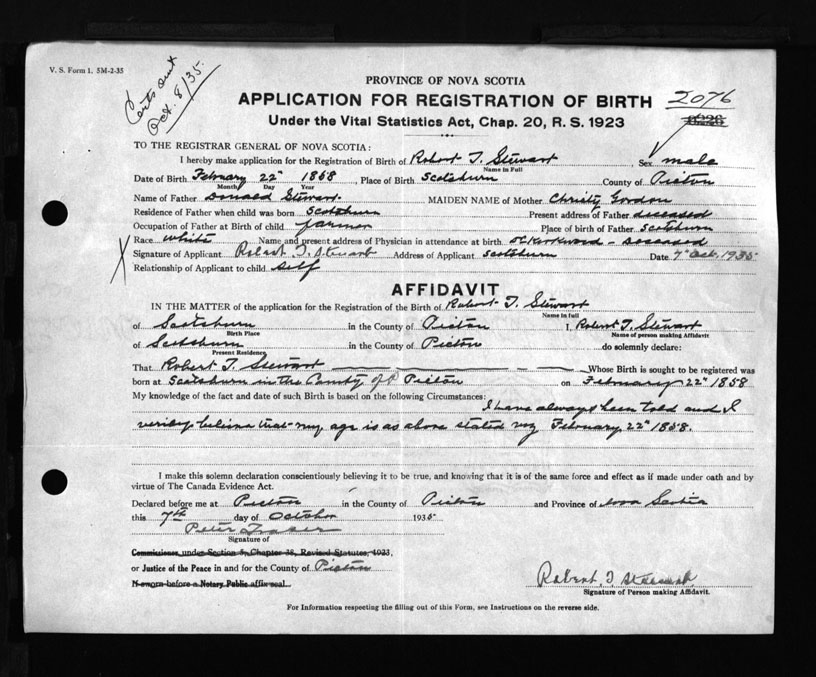 V. S. Form 1. 5M-2-35
Certs sent
Oct. 8/35.
PROVINCE OF NOVA SCOTIA
APPLICATION FOR REGISTRATION OF BIRTH 2076
Under the Vital Statistics Act, Chap. 20, R. S. 1923
TO THE REGISTRAR GENERAL OF NOVA SCOTIA:
I hereby make application for the Registration of Birth of Robert T. Stewart, Sex male
Name in Full
Date of Birth February 22nd 1858, Place of Birth Scotsburn County of Pictou
Month Day Year
Name of Father Donald Stewart. MAIDEN NAME of Mother Christy Gordon
Residence of Father when child was born Scotsburn Present address of Father deceased
Occupation of Father at Birth of child farmer Place of birth of Father Scotsburn
Race White Name and present address of Physician in attendance at birth Kirkwood - Deceased
Signature of Applicant Robert T. Stewart Address of Applicant Scotsburn Date 7th Oct. 1935
Relationship of Applicant to child Self
AFFIDAVIT
IN THE MATTER of the application for the Registration of the Birth of Robert T. Stewart
Name in full
of Scotsburn in the County of Pictou I, Robert T. Stewart
Birth Place Name of person making Affidavit
of Scotsburn in the County of Pictou do solemnly declare:
Present Residence
That Robert T. Stewart Whose Birth is sought to be registered was
born at Scotsburn in the County of Pictou on February 22nd 1858
My knowledge of the fact and date of such Birth is based on the following Circumstances:
I have always been told and I
verily believe that my age is as above stated viz February 22nd 1858.
I make this solemn declaration conscientiously believing it to be true, and knowing that it is of the same force and effect as if made under oath and by
virtue of The Canada Evidence Act.
Declared before me at Pictou in the County of Pictou and Province of Nova Scotia
this 7th day of October 1935
Peter Fraser
Signature of
Commissioner, under Section 5, Chapter 38, Revised Statutes, 1923,
or Justice of the Peace in and for the County of Pictou
If sworn before a Notary Public affix seal.
Robert T Stewart
Signature of Person making Affidavit.
For Information respecting the filling out of this Form, see Instructions on the reverse side.